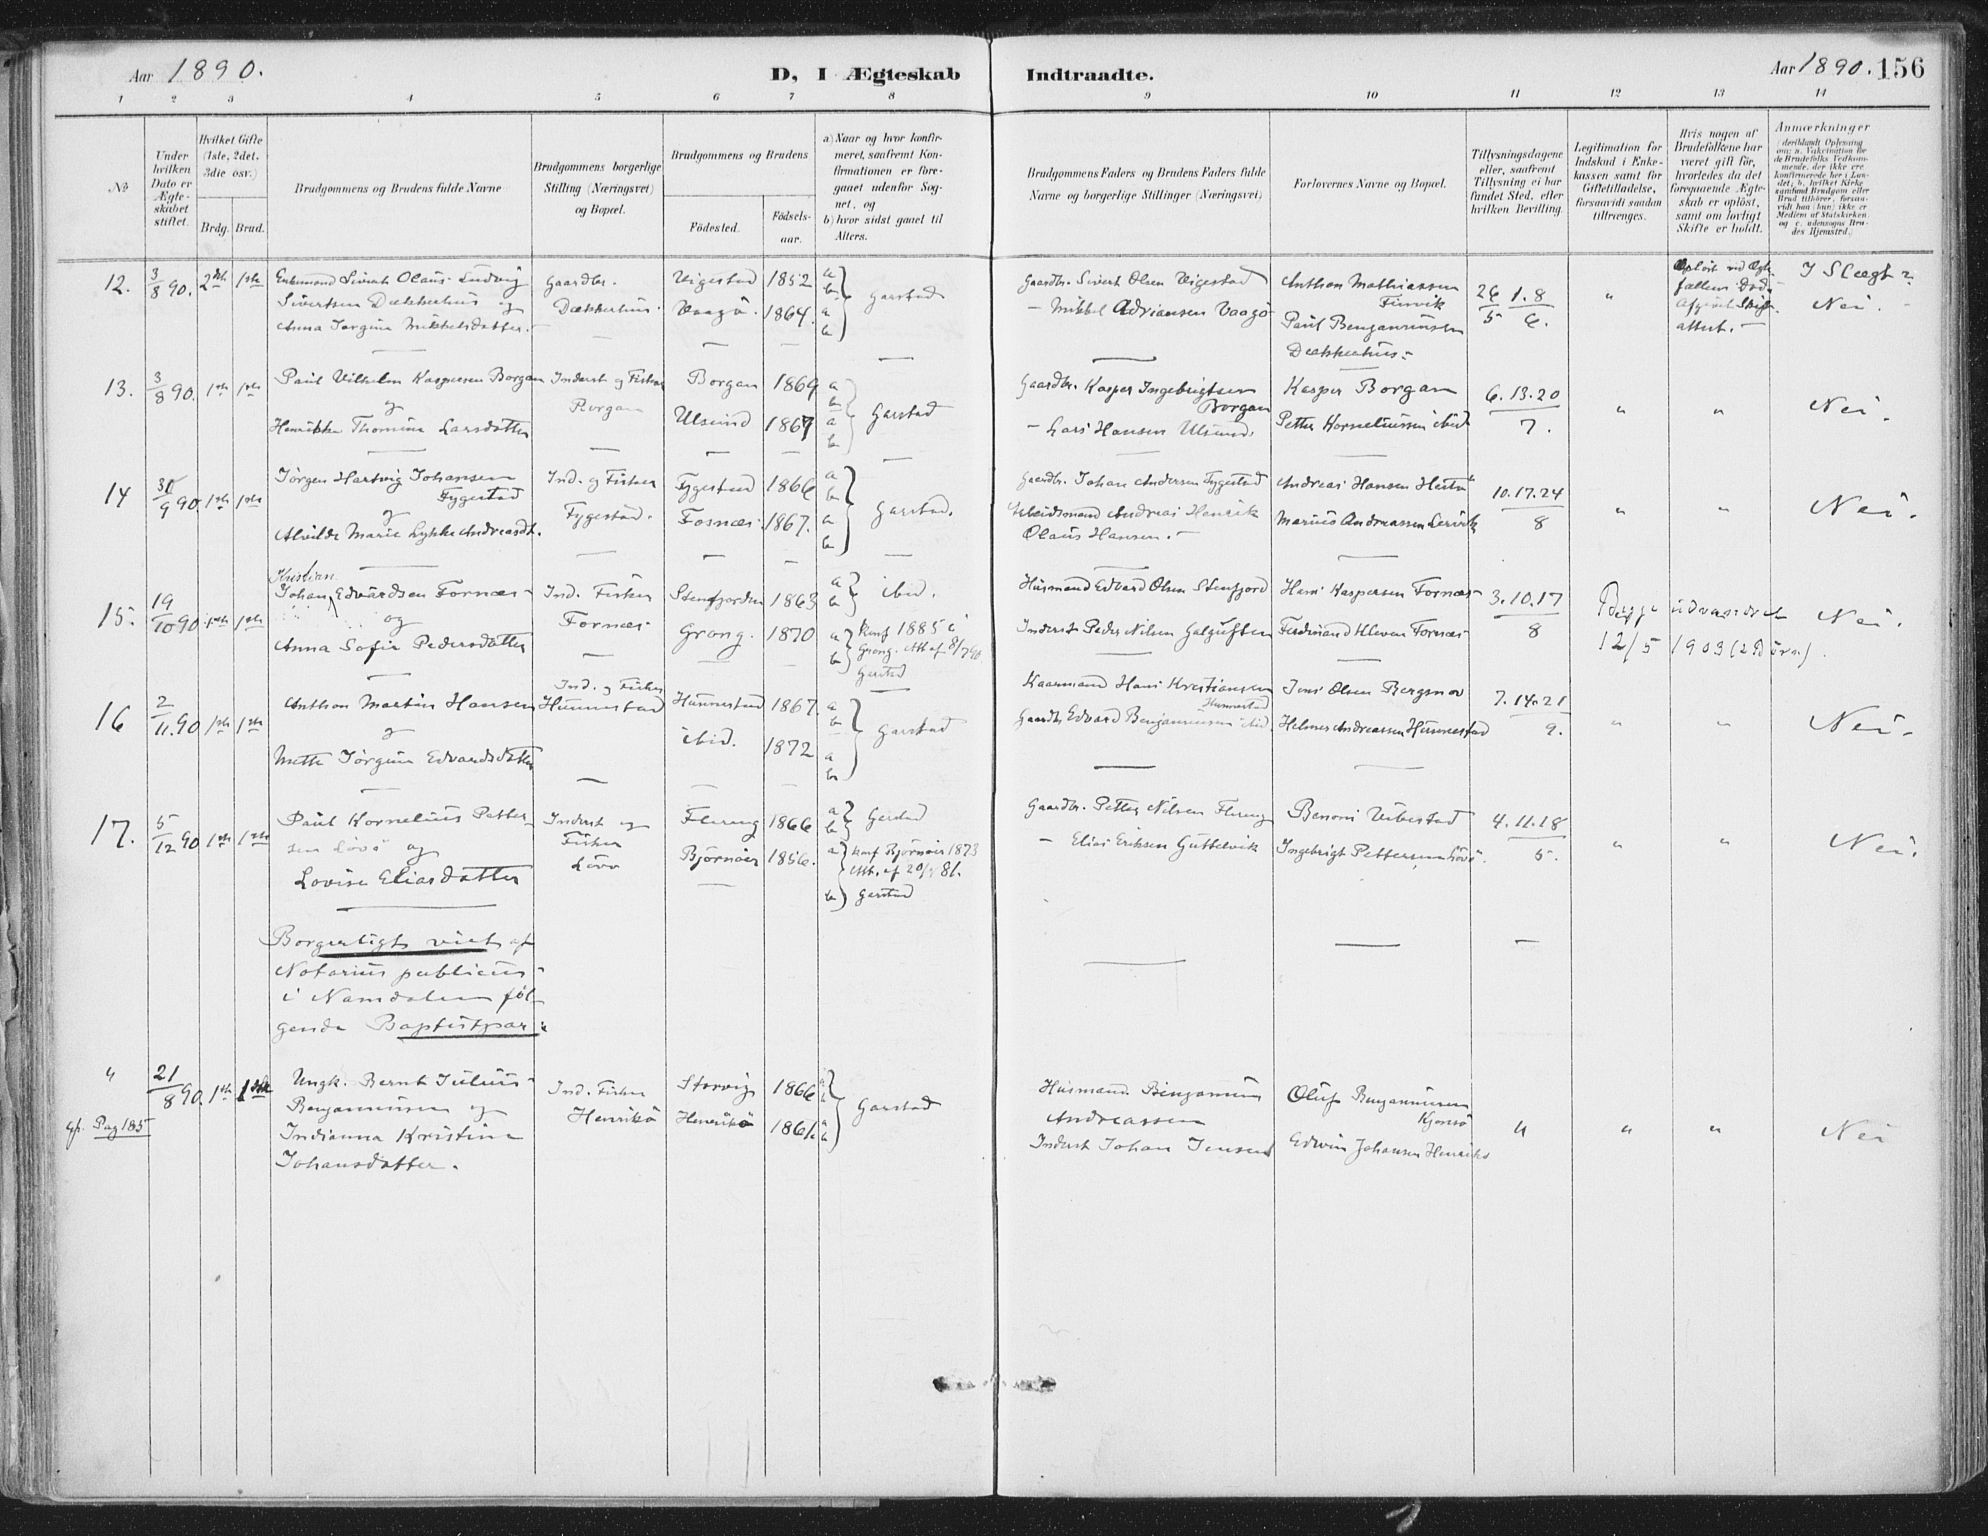 Aar 1890.
D, I Ægteskab Indtraadte.
Aar 1890. 156
1 2 3 4 5 6 7 8 9 10 11 12 13 14
No
Under hvilken Dato er Ægteskabet stiftet.
Hvilket Gifte (1ste, 2det, 3die osv.)
Brdg. Brud.
Brudgommens og Brudens fulde Navne
Brudgommens borgerlige Stilling (Næringsvei) og Bopæl.
Brudgommens og Brudens
Fødested. Fødselsaar.
a) Naar og hvor konfirmeret, saafremt Konfirmationen er foregaaet udenfor Sognet, og
b) hvor sidst gaaet til Alters.
Brudgommens Faders og Brudens Faders fulde Navne og borgerlige Stillinger (Næringsvei)
Forlovernes Navne og Bopæl.
Tillysningsdagene eller, saafremt Tillysning ei har fundet Sted, efter hvilken Bevilling.
Legitimation for Indskud i Enkekassen samt for Giftetilladelse, forsaavidt saadan tiltrænges.
Hvis nogen af Brudefolkene har været gift før, hvorledes da det foregaaende Ægteskab er opløst, samt om lovligt Skifte er holdt.
Anmærkninger
12. 3/8 90. 2det 1ste
Enkemand Sivert Olaus Ludvig
Sivertsen Dækkerhus og
Anna Jørgine Mikkelsdatter.
Gaardbr.
Dækkerhus
Vigestad 1852
Vaagø. 1864.
a b a b Garstad
Gaardbr. Sivert Olsen Vigestad
— Mikkel Adriansen Vaagø
Anthon Mathiassen
Finvik
Paul Benjaminsen
Dækkerhus
26 1. 8
5 6.
"
Opløst ved Ægtefællens Død
attest.
I Slægt?
Nei.
13. 3/8 90. 1ste 1ste
Paul Vilhelm Kaspersen Borgan
og
Henrikke Thomine Larsdatter
Inderst og Fisker
Borgan
Borgan 1869
Ulsund 1867
a b a b Garstad
Gaardbr. Kasper Ingebrigtsen
Borgan
— Lars Hansen Ulsund.
Kasper Borgan
Petter Korneliussen ibid
6. 13. 20
7.
" "
Nei.
14 9 90. 1ste 1ste
Jørgen Hartvig Johansen
Fygestad
og
Alvilde Marie Lykke Andreasdt.
Ind. og Fisker
Fygestad.
Fygestad 1866
Fosnæs 1867.
a b a b Garstad.
Gaardbr. Johan Andersen Fygestad
Arbeidsmand Andreas Henrik
Olaus Hansen.
Andreas Hansen
Marius Andreassen Lervik
10. 17. 24
8
" "
Nei.
15. 19/10 90 1ste 1ste
Kristian
Johan Edvardsen Fornæs
og
Anna Sofie Pedersdatter
Ind. Fisker
Fornæs
Stenfjorden 1863
Grong. 1870
a b ibid.
a Konf 1885 i
Grong. Att af 8/7 90.
b Garstad
Husmand Edvard Olsen Stenfjord
Inderst Peder Nilsen Galguften
Hans Kaspersen Fornæs
Ferdinand Kleven Fornæs
3. 10. 17
8
Begge udvandret
12/5 1903 (2 Børn).
Nei.
16 2/11 90 1ste 1ste
Anthon Martin Hansen
og
Mette Jørgine Edvardsdatter
Ind. og Fisker
Hunnestad
Hunnestad 1867.
ibid. 1872
a b a b Garstad
Kaarmand Hans Kristiansen
Hunnestad
Gaardbr Edvard Benjaminsen ibid
Jens Olsen Bergsnov
Helmer Andreassen Hunnestad
7. 14. 21
9.
" "
Nei.
17. 5/12 90 1ste 1ste
Paul Kornelius Pettersen
Løvø og
Lovise Eliasdatter
Inderst og
Fisker
Løvø
Flereng 1866
Bjørnør 1856.
a b Garstad
a Konf Bjørnør 1873
b Garstad
Gaardbr. Petter Nilsen Flereng
— Elias Eriksen Guttelvik
Benoni Vibestad
Ingebrigt Pettersen Løvø.
4. 11. 18
5.
" "
Nei.
Borgerligt viet af
Notarius publicus
i Namdalen føl-
gende Baptistpar:
" 21/8 90. 1ste 1ste
gf. Pag 185
Ungk. Bernt Julius
Benjaminsen og
Indianna Kristine
Johansdatter.
Ind. Fisker
Henrikø
Storvig 1866
Henrikø 1861.
a b a b Garstad
Husmand Benjamin
Andreassen
Inderst Johan Jensen
Oluf Benjaminsen
Edvin Johansen Henrikø
" " "
Nei